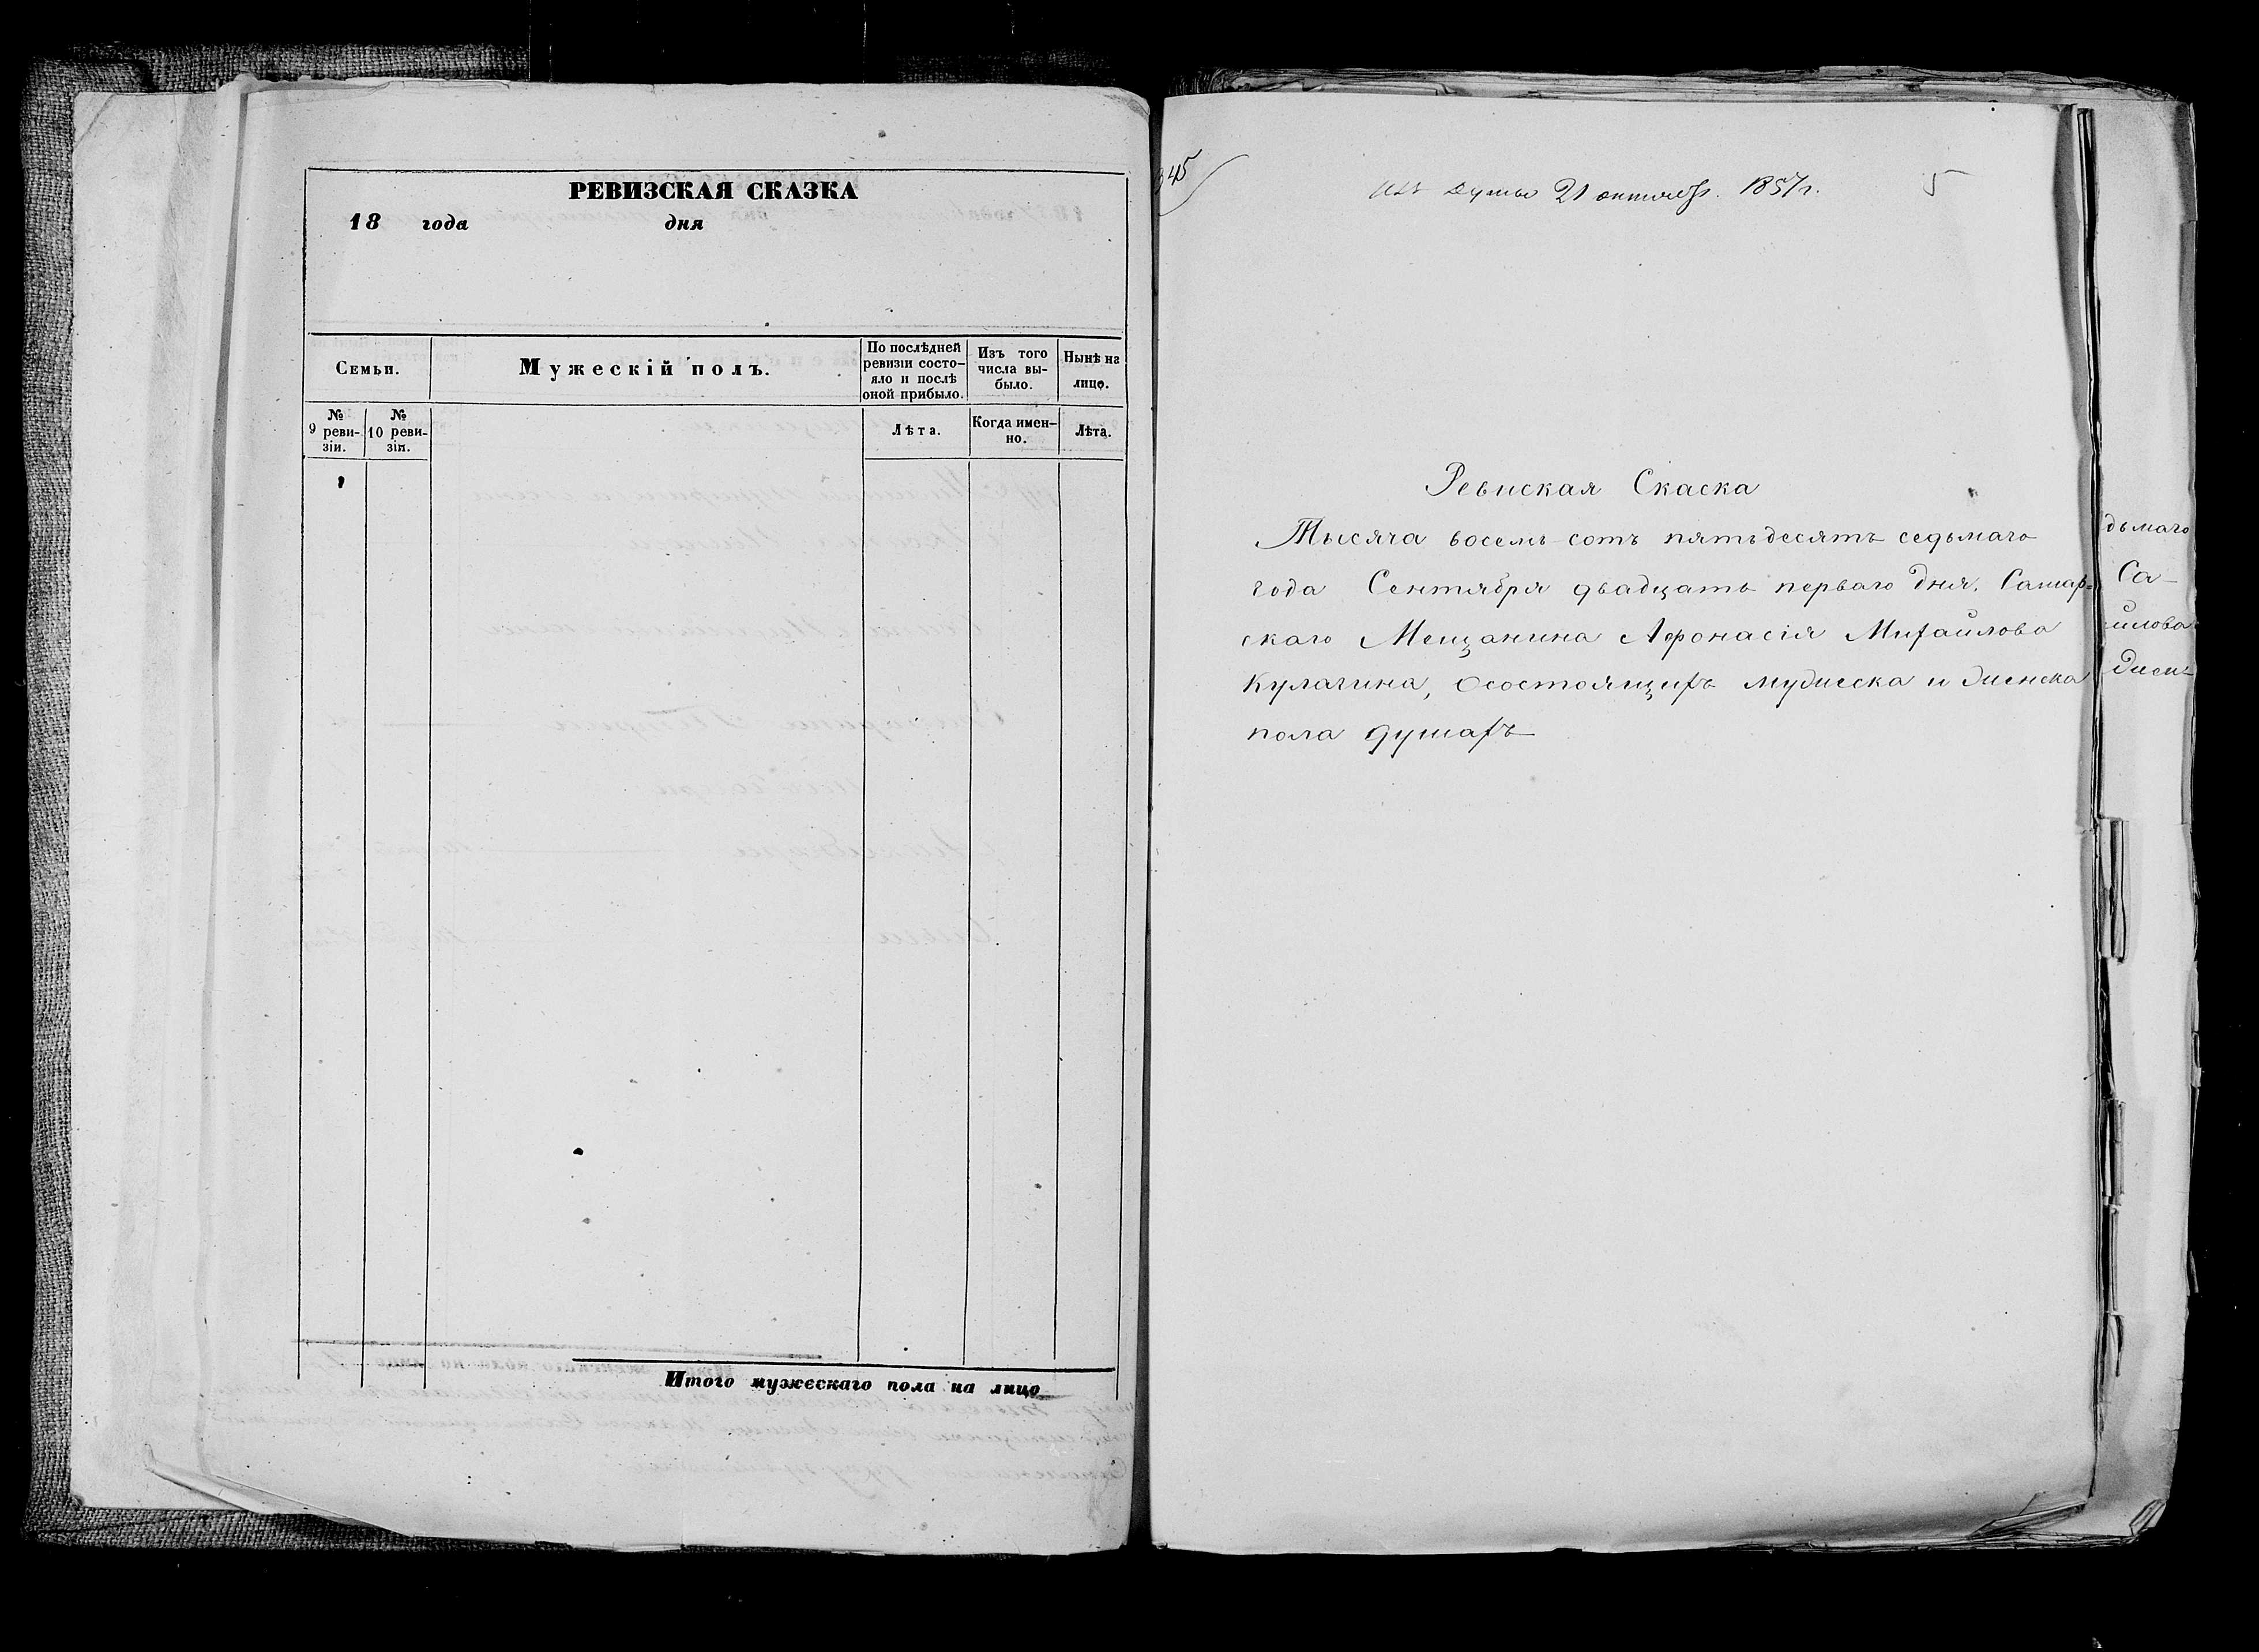 РЕВИЗСКАЯ СКАЗКА
18 года дня
Семьи.
Мужескій полъ.
По послѣдней ревизіи состо-
яло и послѣ
оной прибыло.
Изъ того
числа вы-
было.
Нынѣ на
лицо.
№
9 реви-
зіи.
№
10 реви-
зіи.
Лѣта.
Когда имен-
но.
Лѣта.
Итого мужескаго пола на лицо
45
Изъ Думы 21 октября. 1857 г.
5
Ревиская Скаска
Тысяча восемь сотъ пятьдесятъ седьмаго
года Сентября двадцать перваго дня. Самар=
скаго Мещанина Афонасія Михайлова
Кулагина, Осостоящихъ мужеска и женска
пола душахъ
дьмаго
Са-
йлова
жен-